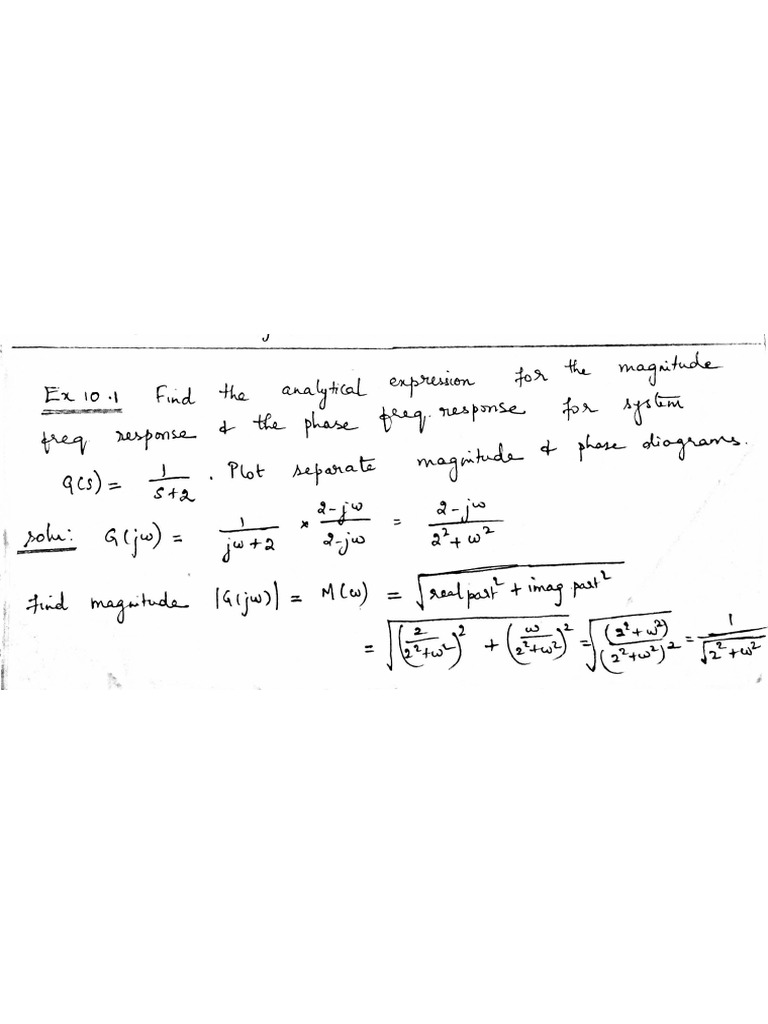 Ex 10.1 Find the analytical expression for the magnitude
freq. response & the phase freq. response for system
G(s) = 1/(s+2) . Plot separate magnitude & phase diagrams.
soln: G(jω) = 1/(jω+2) × (2-jω)/(2-jω) = (2-jω)/(2²+ω²)
Find magnitude |G(jω)| = M(ω) = √(real part² + imag. part²)
= √((2/(2²+ω²))² + (ω/(2²+ω²))²) = √((2²+ω²)/(2²+ω²)²) = 1/√(2²+ω²)